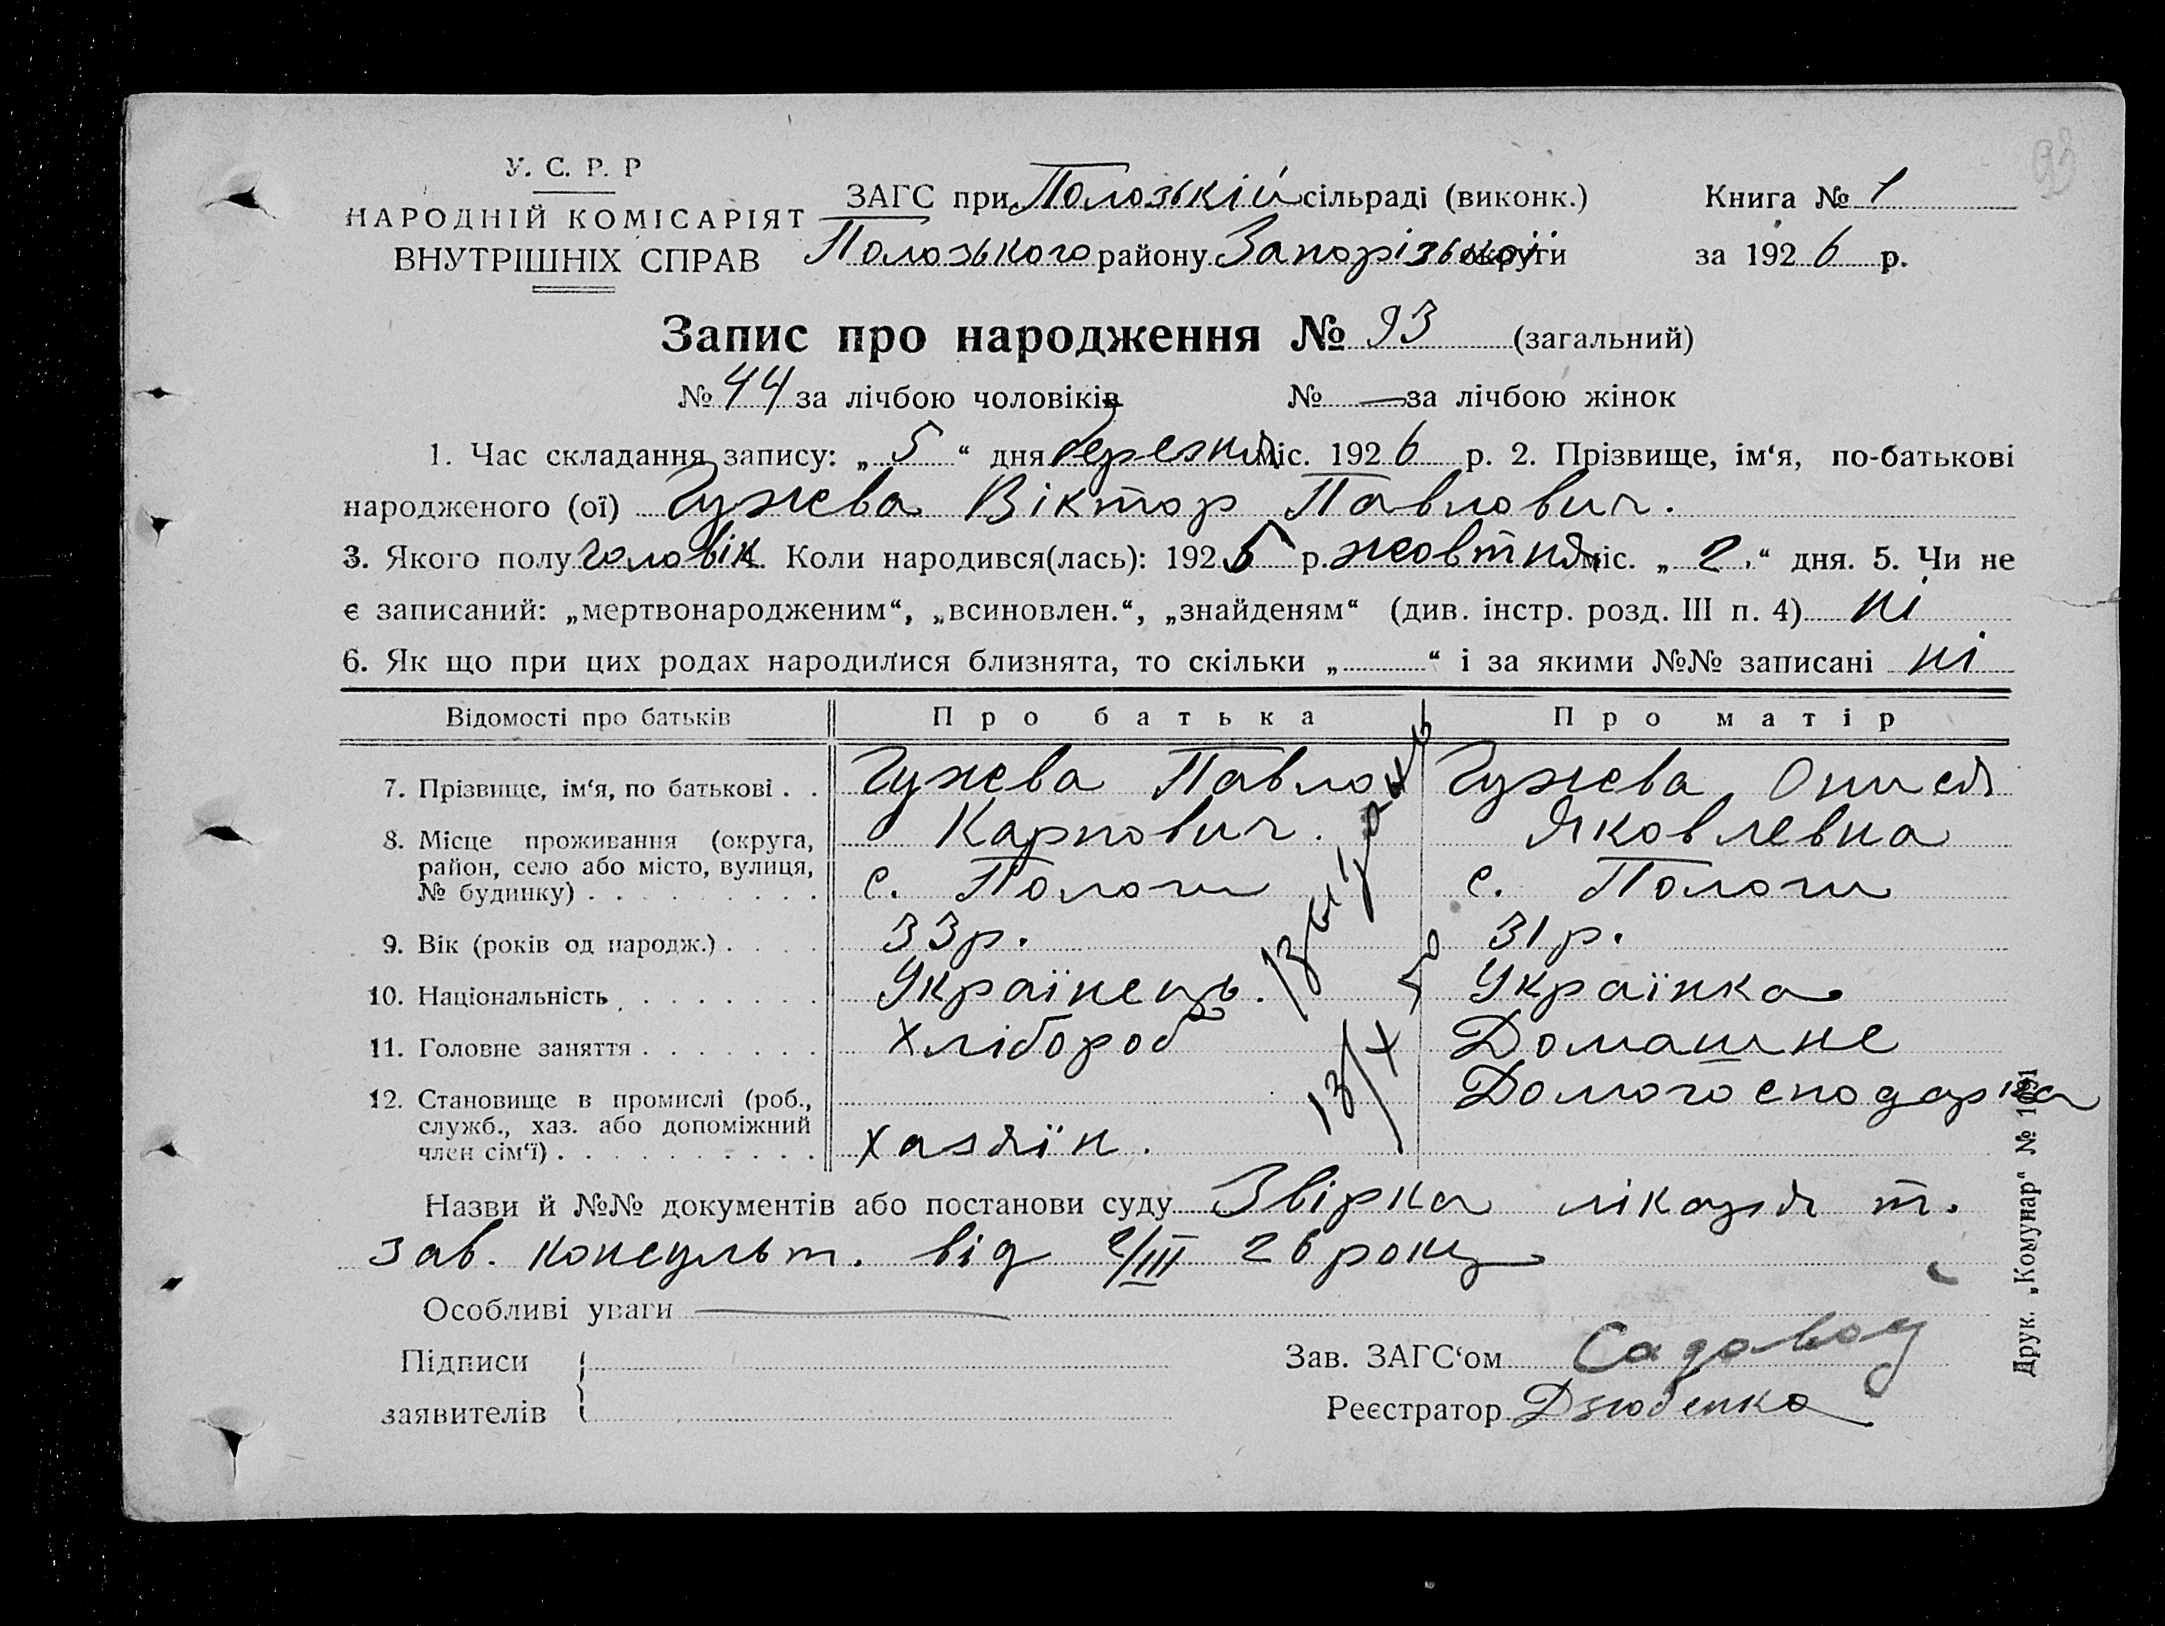 93
У. С. Р. Р
НАРОДНІЙ КОМІСАРІЯТ
ВНУТРІШНІХ СПРАВ
ЗАГС при Полозькій сільраді (виконк.)
Полозького району Запорізької округи
Книга № 1
за 1926 р.
Запис про народження № 93 (загальний)
№ 44 за лічбою чоловіків № — за лічбою жінок
1. Час складання запису: „ 5 “ дня березня міс. 1926 р. 2. Прізвище, ім‘я, по-батькові
народженого (ої) Гужева Віктор Павлович.
3. Якого полу чоловік. Коли народився(лась): 1925 р. жовтня міс. „ 2 “ дня. 5. Чи не
є записаний: „мертвонародженим“, „всиновлен.“, „знайденям“ (див. інстр. розд. III п. 4) ні
6. Як що при цих родах народилися близнята, то скільки „ “ і за якими №№ записані ні
Відомості про батьків Про батька Про матір
7. Прізвище, ім‘я, по батькові . . Гужева Павло Гужева
8. Місце проживання (округа, Карпович. Яковлевна
район, село або місто, вулиця,
№ будинку) с. Пологи с. Пологи
9. Вік (років од народж.) 33 р. 31 р.
10. Національність Українець. Українка
11. Головне заняття Хлібороб Домашнє
12. Становище в промислі (роб., Домогосподарка
служб., хаз. або допоміжний
член сім‘ї) хазяїн.
13/X 50
Назви й №№ документів або постанови суду Звірка лікаря т.
зав. консульт. від 2/III 26 року
Особливі уваги
Підписи
заявителів
Зав. ЗАГС‘ом Садовой
Реєстратор Дзюбенко
Друк. „Комунар“ № 1091